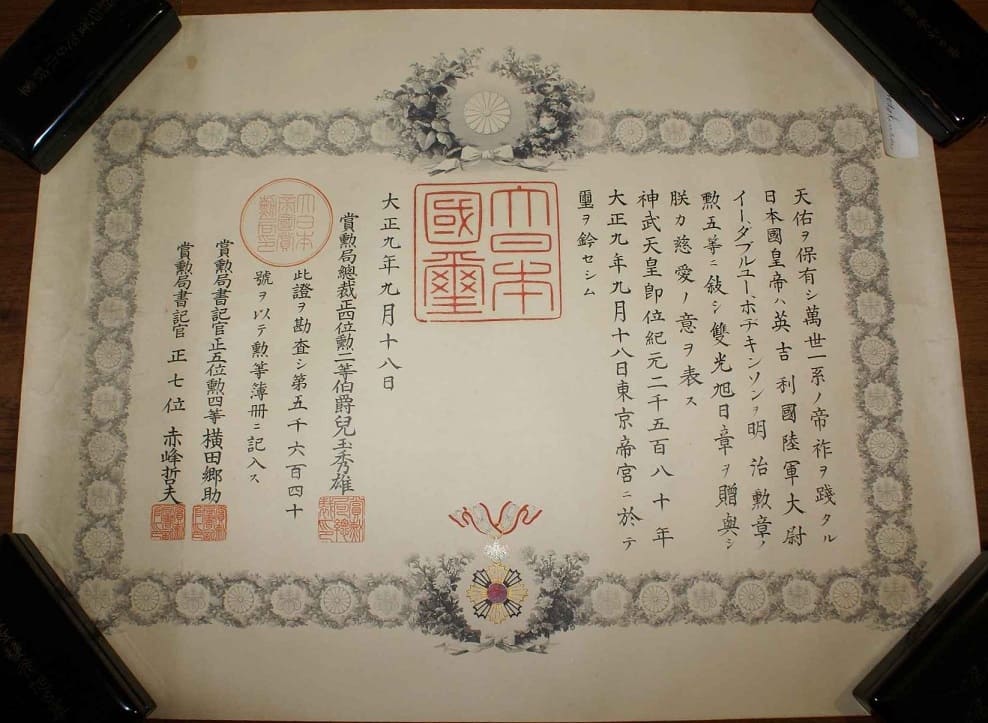 天佑ヲ保有シ萬世一系ノ帝祚ヲ踐タル
日本國皇帝ハ英吉利國陸軍大尉
イー、ダブルユー、ホヂキンソンヲ明治勲章ノ
勲五等ニ敍シ雙光旭日章ヲ贈與シ
朕カ慈愛ノ意ヲ表ス
神武天皇即位紀元二千五百八十年
大正九年九月十八日東京帝宮ニ於テ
璽ヲ鈐セシム
大日本
國璽
大正九年九月十八日
賞勲局總裁正四位勲二等伯爵兒玉秀雄
此證ヲ勘査シ第五千六百四十
號ヲ以テ勲等簿冊ニ記入ス
賞勲局書記官正五位勲四等横田郷助
賞勲局書記官正七位赤峰哲夫
大日本
帝國賞
勲局印